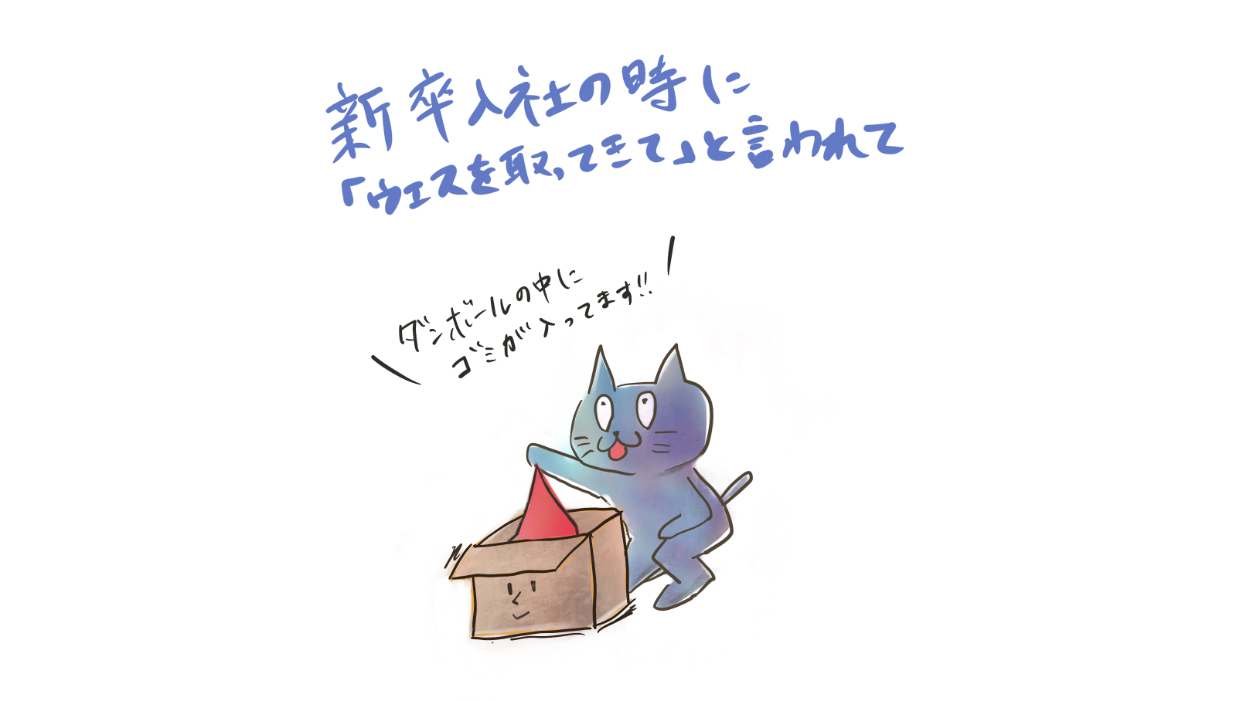 新卒入社の時に
「ウエスを取ってきて」と言われて
ダンボールの中に
ゴミが入ってます!!